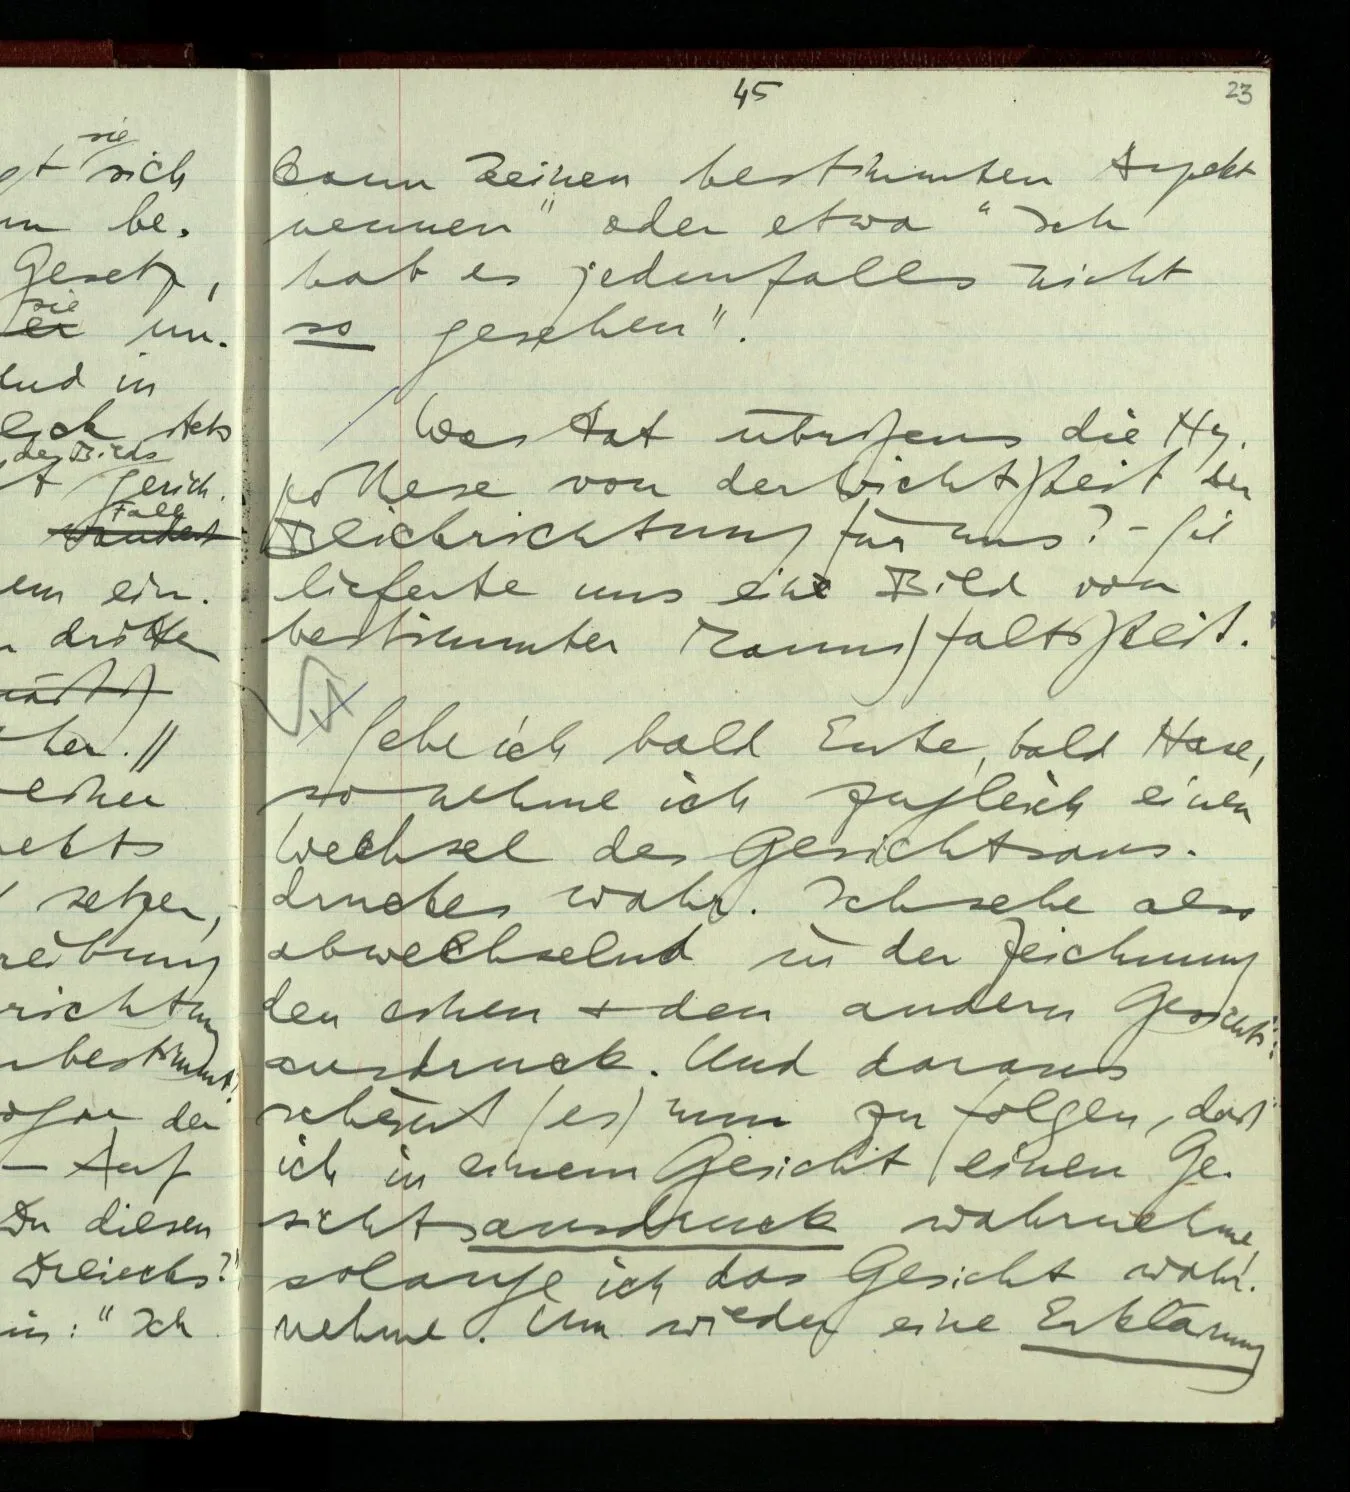 sie
sich
be.
Gesetz,
sie
er un.
und in
Acts
des Bilds
gerich.
Fall
wandert
ein.
dritten
her. //
einer
setzen,
der
– Auf
Du diesen
Dreiecks?"
: "Ich
45
23
kann keinen bestimmten Aspekt
nennen" oder etwa "Ich
hab es jedenfalls nicht
so gesehen".
/ Was tat übrigens die Hy.
pothese von der Wichtigkeit der
Blickrichtung für uns? – Sie
lieferte uns ein Bild von
bestimmter Mannigfaltigkeit.
Sehe ich bald Ente, bald Hase,
so nehme ich zugleich einen
Wechsel des Gesichtsaus-
druckes wahr. Ich sehe also
abwechselnd in der Zeichnung
den einen + den andern Gesichts-
ausdruck. Und daraus
scheint (es) nun zu folgen, daß
ich in einem Gesicht einen Ge-
sichtsausdruck wahrnehme,
solange ich das Gesicht wahr-
nehme. Um wieder eine Erklärung